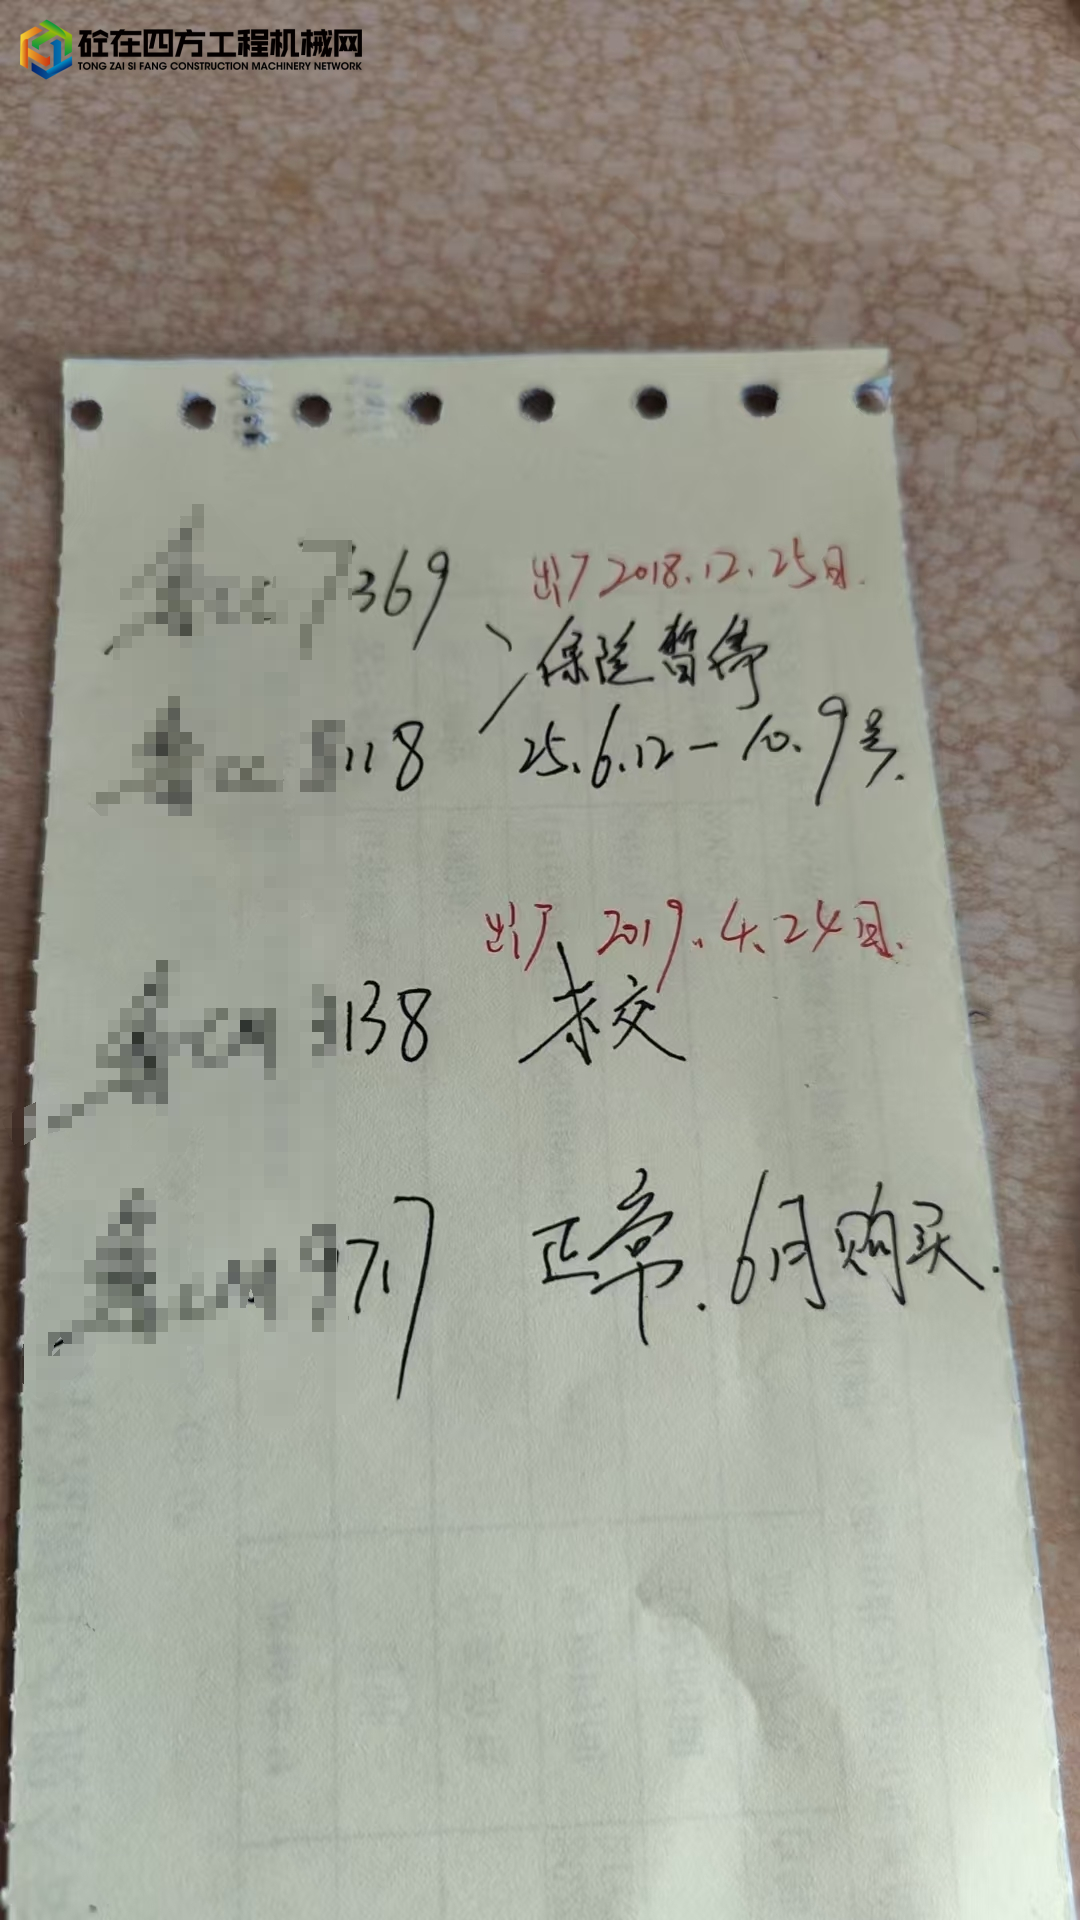 砼在四方工程机械网
TONG ZAI SI FANG CONSTRUCTION MACHINERY NETWORK
7369 出厂2018.12.25日.
保险暂停
5118 25.6.12-10.9号.
出厂 2019.4.24日.
138 未交
9717 正常.6月购买.